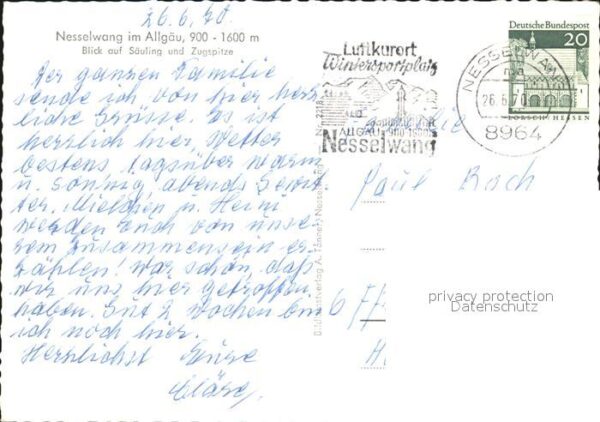 26.6.70.
Nesselwang im Allgäu, 900 - 1600 m
Blick auf Säuling und Zugspitze
Der ganzen Familie
sende ich von hier herz
liche Grüsse. Es ist
herrlich hier, Wetter
bestens, tagsüber warm
u. sonnig, abends Gewit-
ter. u. Heini
werden Euch von unse-
rem Zusammensein er-
zählen! War schön, daß
wir uns hier getroffen
haben. Gut 2 Wochen bin
ich noch hier.
Herzlichst Eure
Cläre.
Luftkurort
Wintersportplatz
ALLGÄU 900-1600m
Nesselwang
NESSELWANG
26.6.70
8964
Deutsche Bundespost
20
LORSCH/HESSEN
Paul Bach
6 Ff
H
privacy protection
Datenschutz